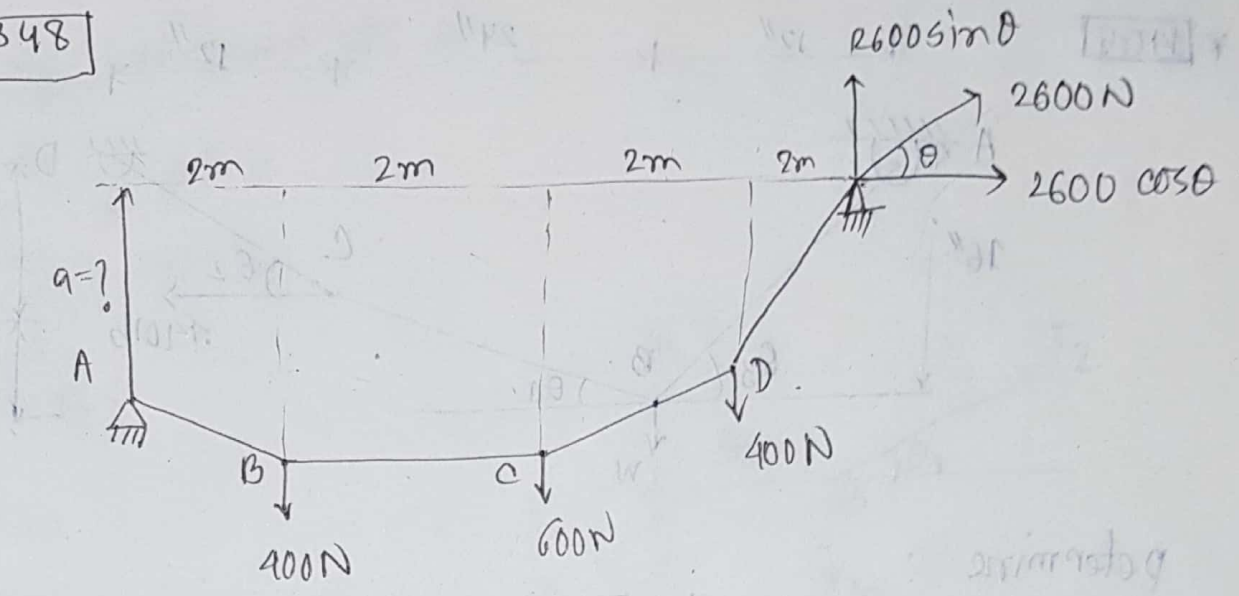 348
R600sinθ
2600N
θ
2600 cosθ
2m 2m 2m 2m
a=?
A
B
C
D.
400N
600N
400N